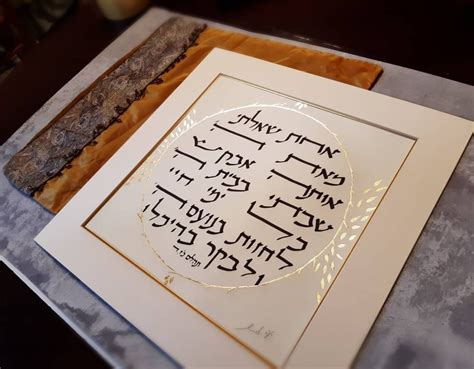 אחת שאלתי
מאת ה
אותה אבקש
שבתי בבית ה
כל ימי חיי
לחזות בנועם ה
ולבקר בהיכלו
תהלים כ״ז ד